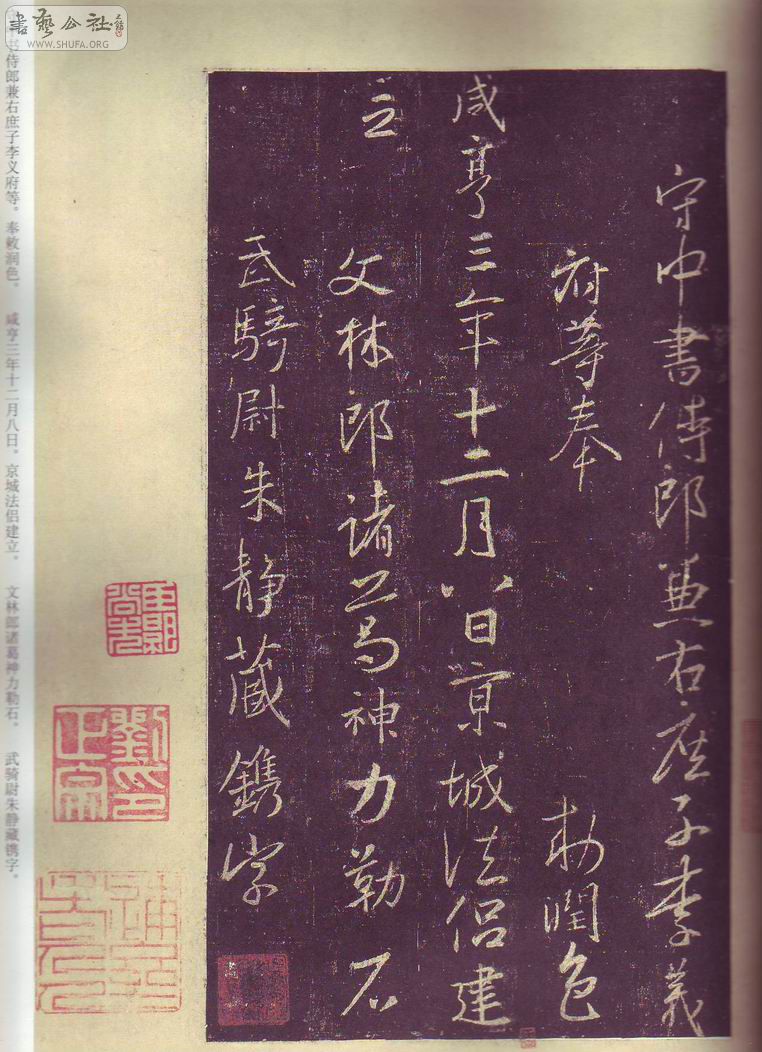 守中書侍郎兼右庶子李義
府等奉 勅潤色
咸亨三年十二月八日京城法侶建
立
文林郎諸葛神力勒石
武騎尉朱静藏鐫字
书侍郎兼右庶子李义府等。奉敕润色。 咸亨三年十二月八日。京城法侣建立。 文林郎诸葛神力勒石。 武骑尉朱静藏镌字。
書藝公社
WWW.SHUFA.ORG